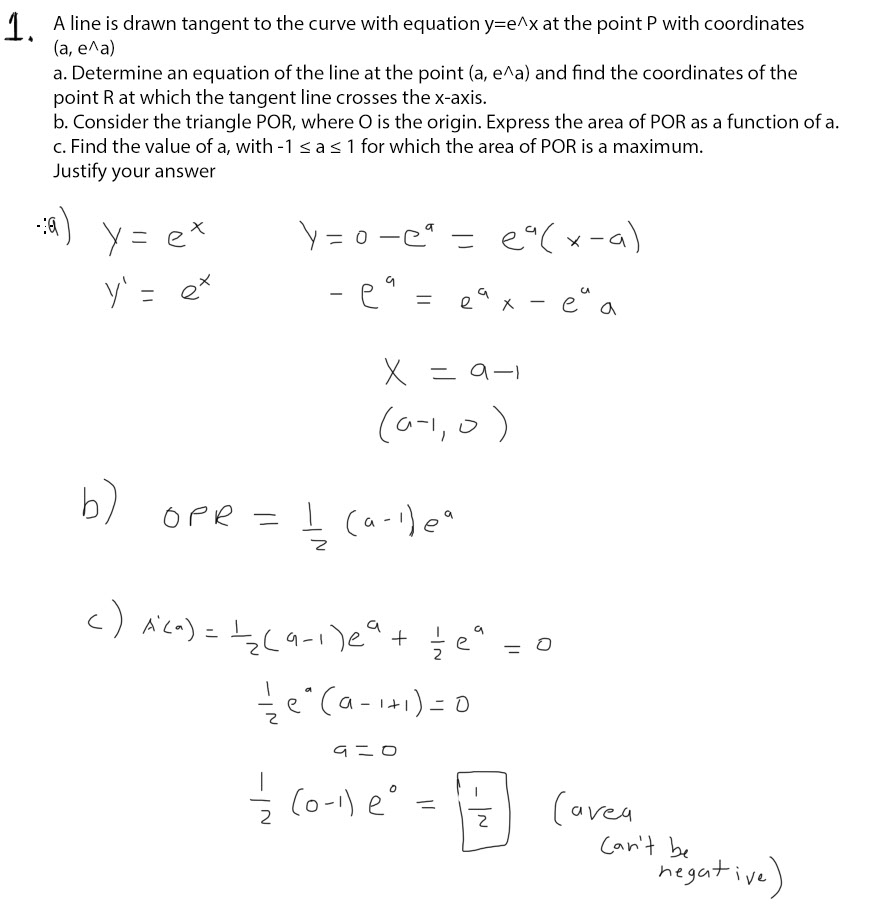 1. A line is drawn tangent to the curve with equation y=e^x at the point P with coordinates
(a, e^a)
a. Determine an equation of the line at the point (a, e^a) and find the coordinates of the
point R at which the tangent line crosses the x-axis.
b. Consider the triangle POR, where O is the origin. Express the area of POR as a function of a.
c. Find the value of a, with -1 ≤ a ≤ 1 for which the area of POR is a maximum.
Justify your answer
a) y = e^x y = 0 - e^a = e^a(x-a)
y' = e^x -e^a = e^a x - e^a a
x = a-1
(a-1, 0)
b) OPR = 1/2 (a-1)e^a
c) A'(a) = 1/2(a-1)e^a + 1/2 e^a = 0
1/2 e^a (a-1+1) = 0
a = 0
1/2 (0-1) e^0 = 1/2 (area
can't be
negative)